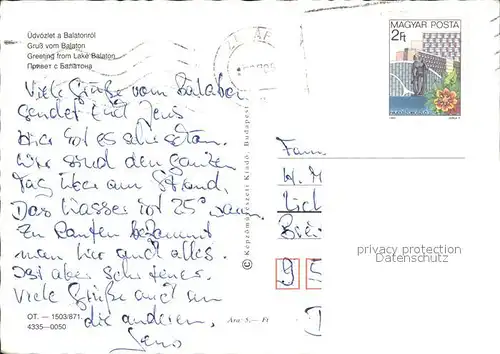 Üdvözlet a Balatonról
Gruß vom Balaton
Greeting from Lake Balaton
Привет с Балатона
MAGYAR POSTA
2Ft
Viele Grüße vom Balaton
sendet Euch Jens
Hier ist es sehr schön.
Wir sind den ganzen
Tag über am Strand.
Das Wasser ist 25° warm.
Zu kaufen bekommt
man hier auch alles.
Ist aber sehr teuer.
Viele Grüße auch an
die anderen.
Jens
© Képzőművészeti Kiadó, Budapest
Fam
W. M
privacy protection
Datenschutz
OT. — 1503/871.
4335—0050
Ára: 5.— Ft